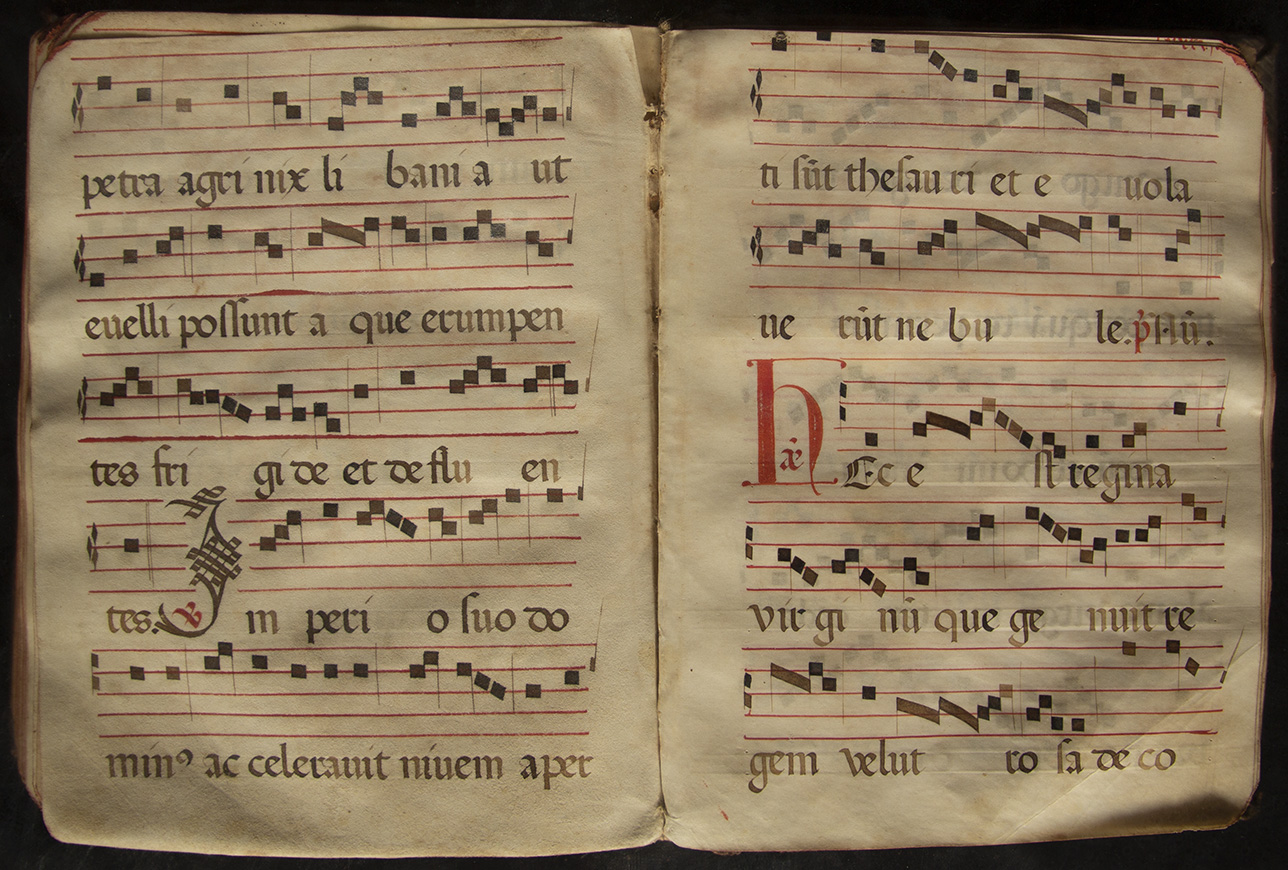 petra agri nix li bani a ut
euelli possunt a que erumpen
tes fri gi de et de flu en
tes. In peri o suo do
minꝰ ac celerauit niuem aper
ti sūt thesau ri et e uola
ue rūt ne bu le. p̄s
hæ Ec e st regina
vir gi nū que ge nuit re
gem velut ro sa de co